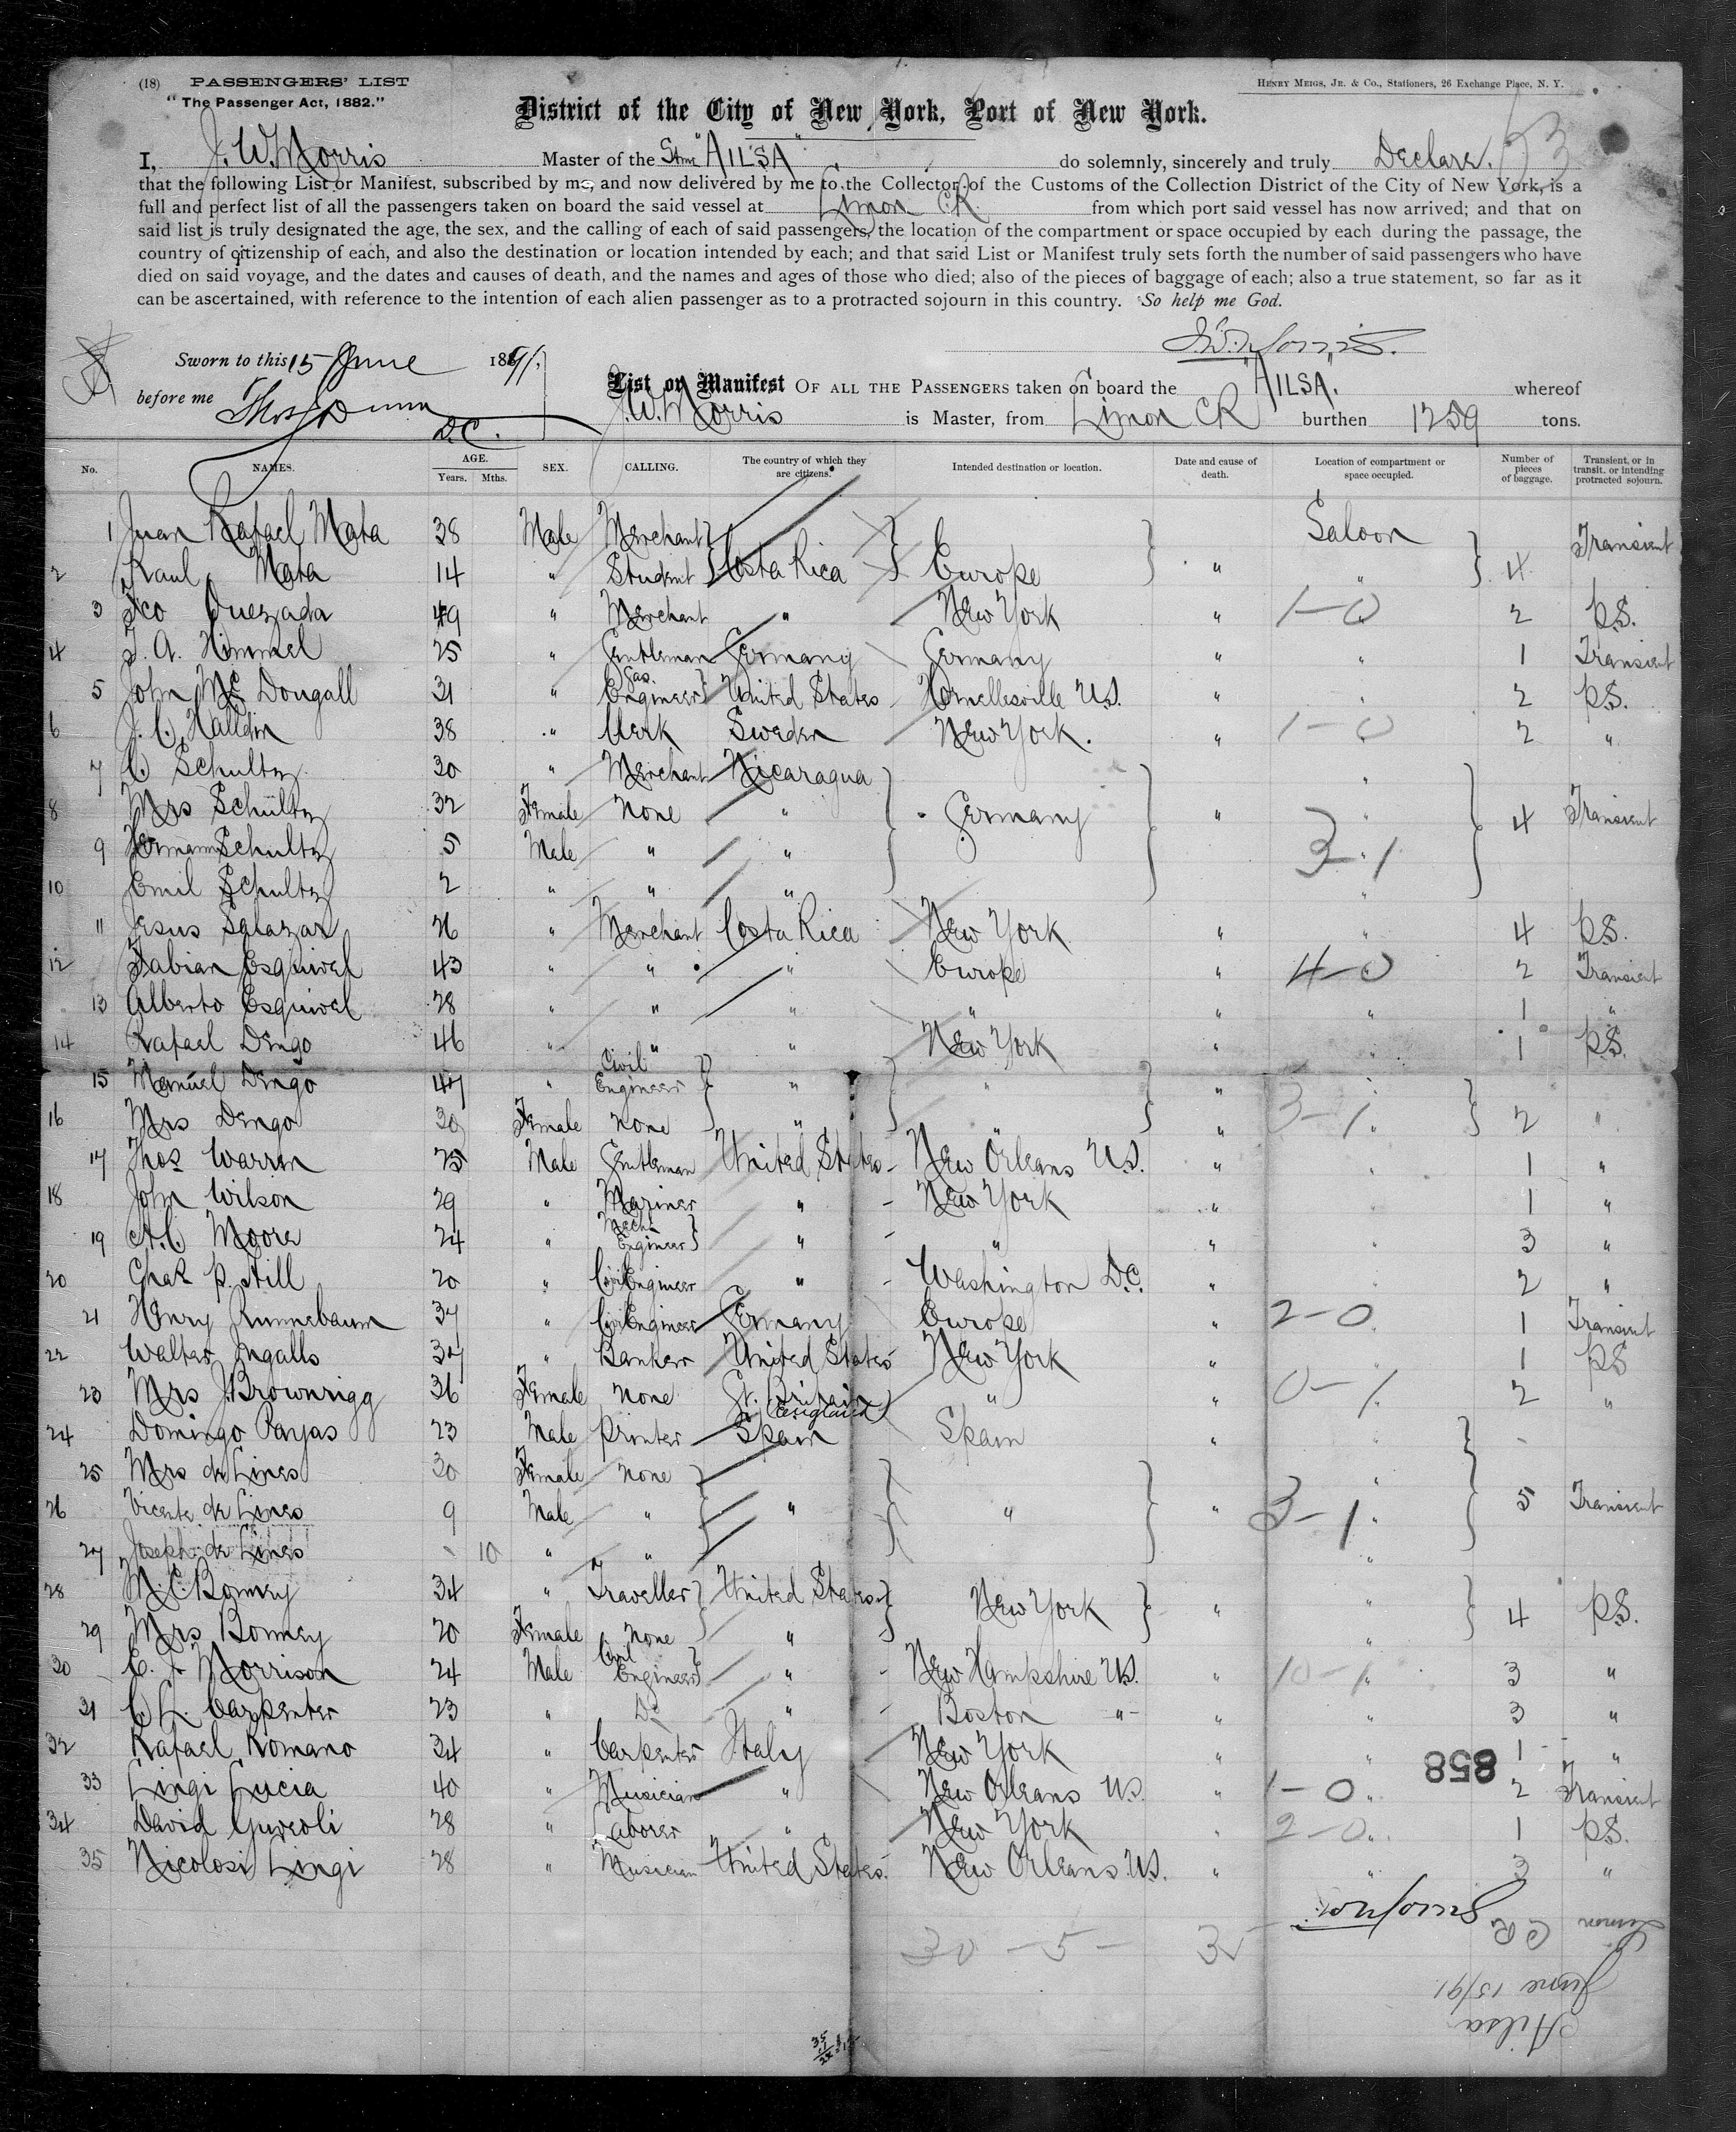 (18) PASSENGERS' LIST
"The Passenger Act, 1882."
HENRY MEIGS, JR. & CO., Stationers, 26 Exchange Place, N. Y.
District of the City of New York, Port of New York.
I, J. W. Morris Master of the Stmr "AILSA" do solemnly, sincerely and truly Declare.
that the following List or Manifest, subscribed by me, and now delivered by me to the Collector of the Customs of the Collection District of the City of New York, is a
full and perfect list of all the passengers taken on board the said vessel at Limon CR from which port said vessel has now arrived; and that on
said list is truly designated the age, the sex, and the calling of each of said passengers, the location of the compartment or space occupied by each during the passage, the
country of citizenship of each, and also the destination or location intended by each; and that said List or Manifest truly sets forth the number of said passengers who have
died on said voyage, and the dates and causes of death, and the names and ages of those who died; also of the pieces of baggage of each; also a true statement, so far as it
can be ascertained, with reference to the intention of each alien passenger as to a protracted sojourn in this country. So help me God.
J. W. Morris.
Sworn to this 15 June 1891.
before me Thos Dunn
D.C.
List or Manifest OF ALL THE PASSENGERS taken on board the "AILSA" whereof
J. W. Morris is Master, from Limon CR burthen 1259 tons.
No. NAMES. AGE. Years. Mths. SEX. CALLING. The country of which they are citizens. Intended destination or location. Date and cause of death. Location of compartment or space occupied. Number of pieces of baggage. Transient, or in transit, or intending protracted sojourn.
1 Juan Rafael Mata 38 Male Merchant Saloon Transient
2 Raul Mata 14 " Student Costa Rica Europe " " 4
3 Fco Quezada 49 " Merchant " New York " 1-0 2 P.S.
4 J. A. Himmel 25 " Gentleman Germany Germany " " 1 Transient
5 John Mc Dougall 31 " Gas Engineer United States Hornellesville U.S. " " 2 P.S.
6 J. C. Halldin 38 " Clerk Sweden New York. " 1-0 2 "
7 C Schultz 30 " Merchant Nicaragua "
8 Mrs Schultz 32 Female None " Germany " " 4 Transient
9 Hermann Schultz 5 Male " " 3-1
10 Emil Schultz 2 " " " "
11 Jesus Salazar 26 " Merchant Costa Rica New York " " 4 P.S.
12 Fabian Esquivel 43 " " " Europe " 4-0 2 Transient
13 Alberto Esquivel 28 " " " " " " 1 "
14 Rafael Dengo 46 " " " New York " " 1 P.S.
15 Manuel Dengo 47 " Civil Engineer " " " "
16 Mrs Dengo 30 Female None " " " 3-1 2 "
17 Thos Warren 25 Male Gentleman United States New Orleans U.S. " " 1 "
18 John Wilson 29 " Mariner " New York " " 1 "
19 A. C. Moore 24 " Mech Engineer " " " " 3 "
20 Chas P. Hill 20 " Civil Engineer " Washington D.C. " " 2 "
21 Henry Runnebaum 37 " Civil Engineer Germany Europe " 2-0 1 Transient
22 Walter Ingalls 37 " Banker United States New York " " 1 P.S
23 Mrs J. Brownrigg 36 Female None Gt. Britain (England) " " 0-1 2 "
24 Domingo Payas 23 Male Printer Spain Spain " " -
25 Mrs de Lines 30 Female None "
26 Vicente de Lines 9 Male " " " " 3-1 5 Transient
27 Joseph de Lines 10 " " "
28 N. C. Bonney 34 " Traveller United States New York " " 4 P.S.
29 Mrs Bonney 20 Female None " "
30 E. J. Morrison 24 Male Civil Engineer " New Hampshire U.S. " 10-1 3 "
31 C. L. Carpenter 23 " Do " Boston " " " 3 "
32 Rafael Romano 34 " Carpenter Italy New York " " 1 "
33 Lingi Lucia 40 " Musician " New Orleans U.S. " 1-0 2 Transient
34 David 28 " Laborer " New York " 2-0 1 P.S.
35 Nicolosi Lingi 28 " Musician United States. New Orleans U.S. " " 3 "
858
30 - 5 - 35
Limon C.R.
June 15/91
Ailsa